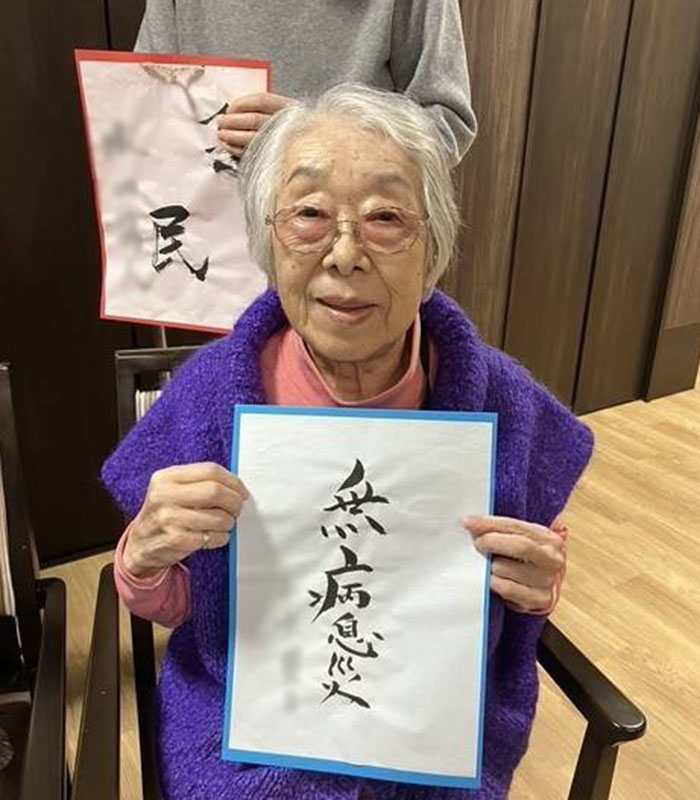 民
無病息災